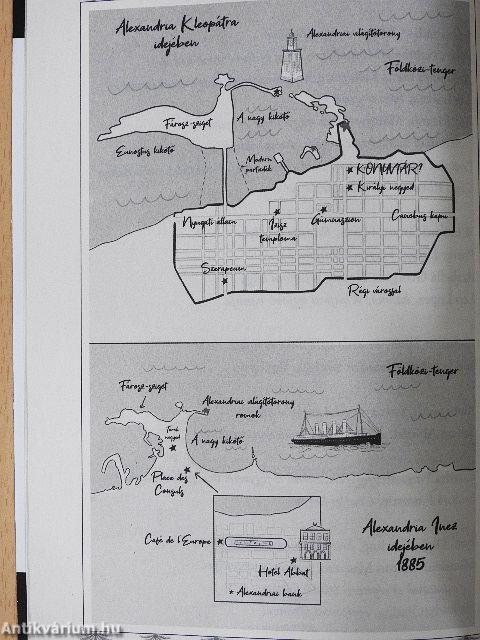 Alexandria Kleopátra
idejében
Alexandriai világítótorony
Földközi-tenger
Fárosz-sziget
A nagy kikötő
Eunostus kikötő
Modern
partvonal
KÖNYVTÁR?
Királyi negyed
Nyugati állam
Ízisz
temploma
Gümnaszion
Canobus kapu
Szerapeum
Régi városfal
Földközi-tenger
Fárosz-sziget
Alexandriai világítótorony
romok
Török
negyed
A nagy kikötő
Place des
Consuls
Café de l'Europe
Hotel Abbat
* Alexandriai bank
Alexandria Inez
idejében
1885
Antikvárium.hu